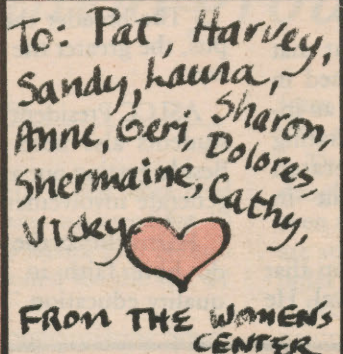 To: Pat, Harvey,
Sandy, Laura,
Anne, Geri, Sharon,
Shermaine, Dolores,
Vicky, Cathy,
FROM THE WOMENS
CENTER